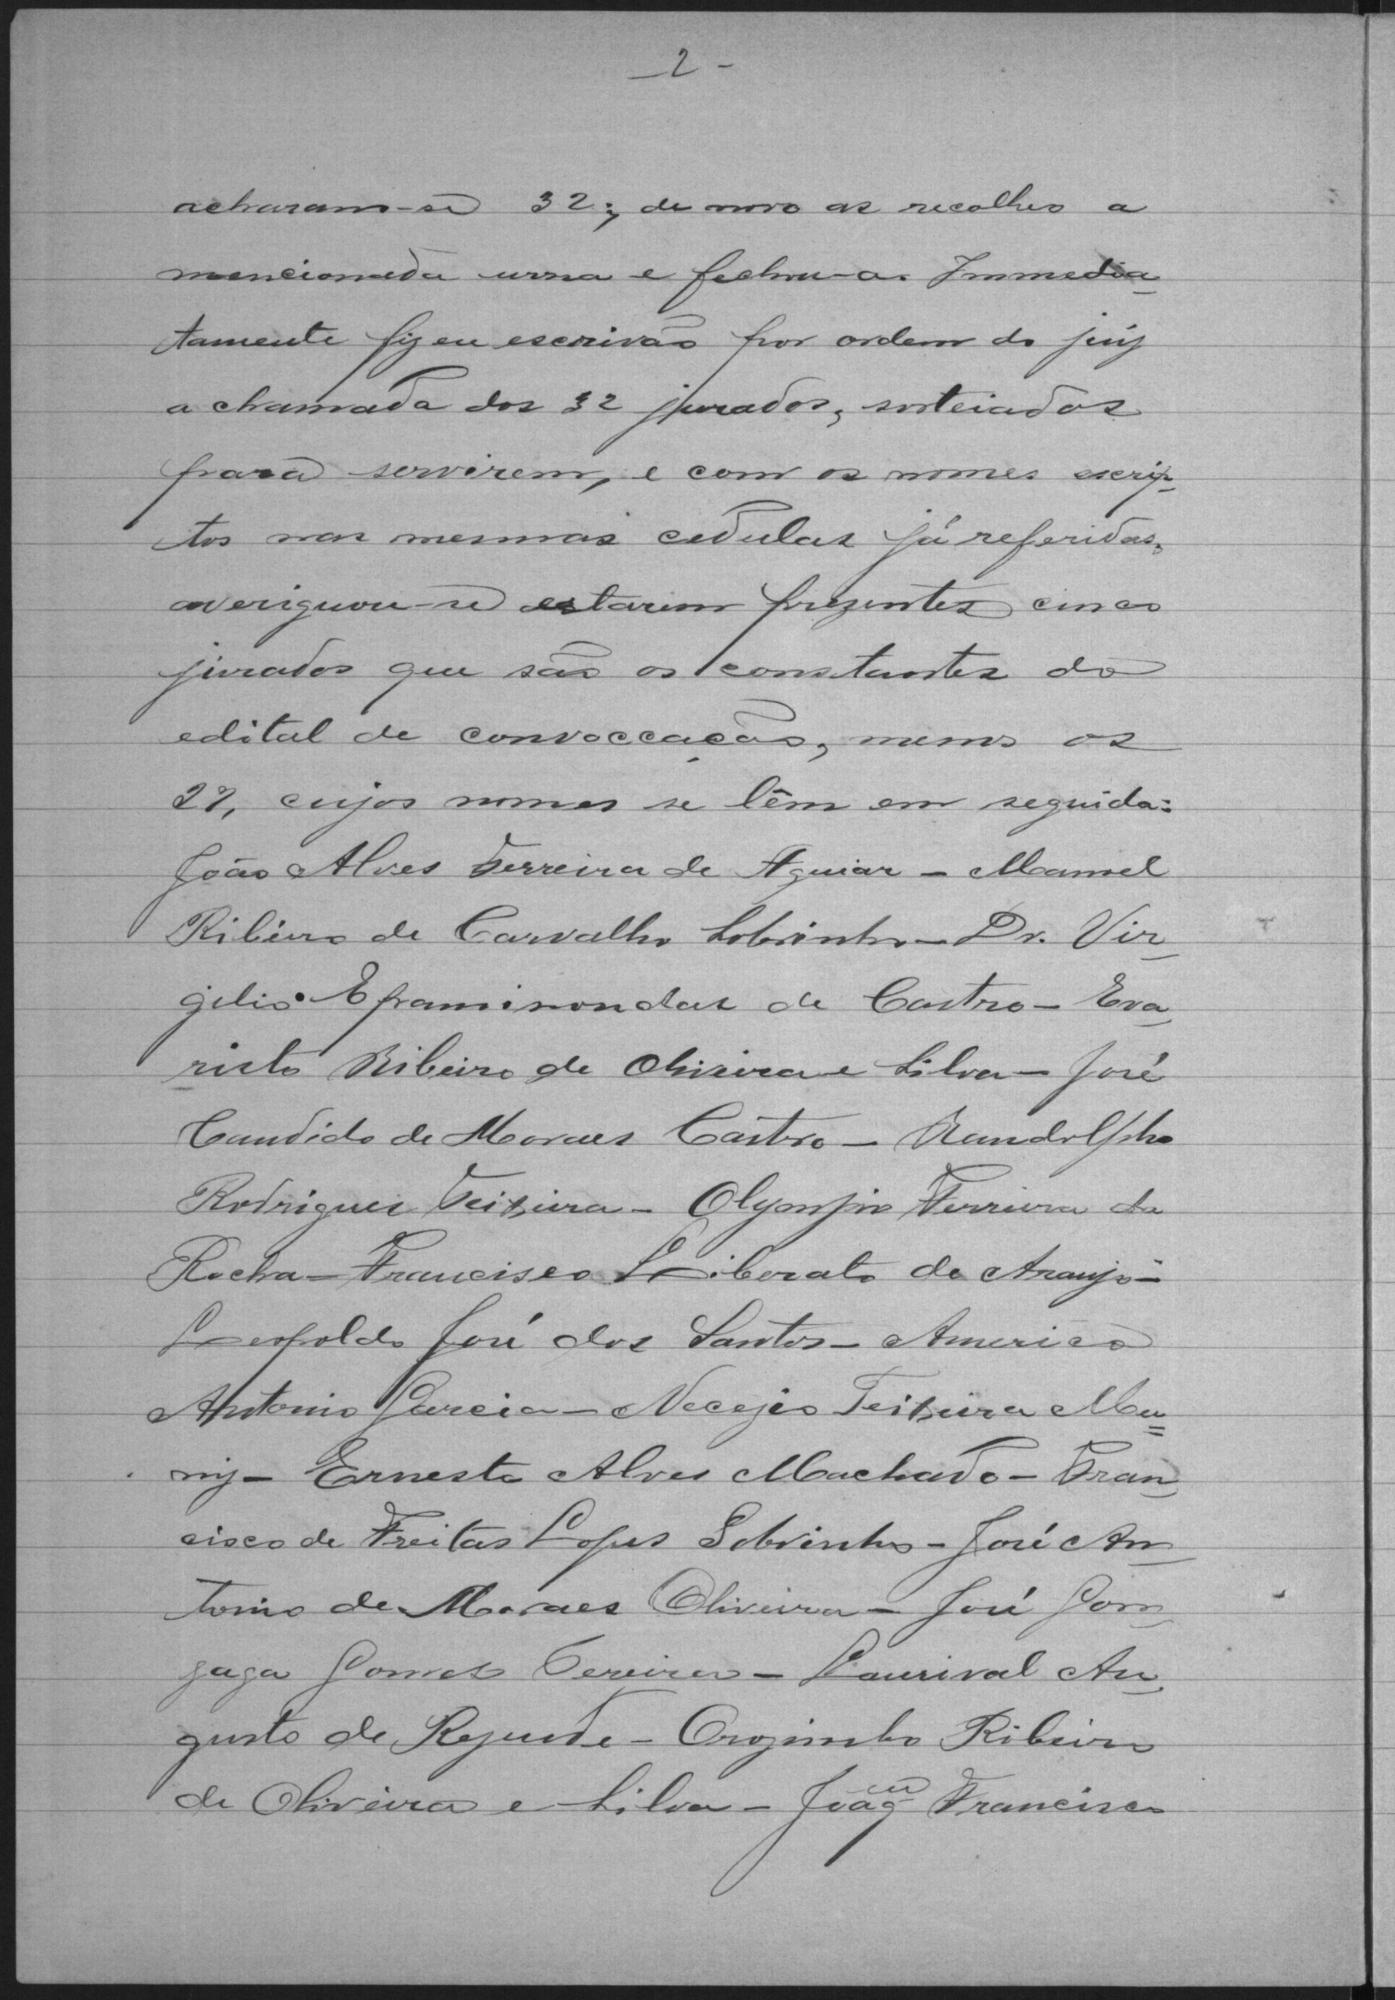 _2_
acharam-se 32; de novo as recolheo a
mencionada urna e fechou-a. Immedia-
tamente fiz eu escrivão por ordem do juiz
a chamada dos 32 jurados, sorteiados
para servirem, e com os nomes escrip-
tos nas mesmas cedulas já referidas,
averiguou-se estarem prezentes cinco
jurados que são os constantes do
edital de convoccação, menos os
27, cujos nomes se lêm em seguida:
João Alves Ferreira de Aguiar - Manoel
Ribeiro de Carvalho Sobrinho - Dr. Vir-
gilio Epaminondas de Castro - Eva-
risto Ribeiro de Oliveira e Silva - José
Candido de Moraes Castro - Randolpho
Rodrigues Teixeira - Olympio Ferreira da
Rocha - Francisco Liberato de Araujo -
Leopoldo José dos Santos - Americo
Antonio Garcia - Necezio Teixeira Mu-
niz - Ernesto Alves Machado - Fran-
cisco de Freitas Lopes Sobrinho - José An-
tonio de Moraes Oliveira - José Gon-
zaga Gomes Pereira - Laurival Au-
gusto de Rezende - Orozimbo Ribeiro
de Oliveira e Silva - Joaqm Francisco